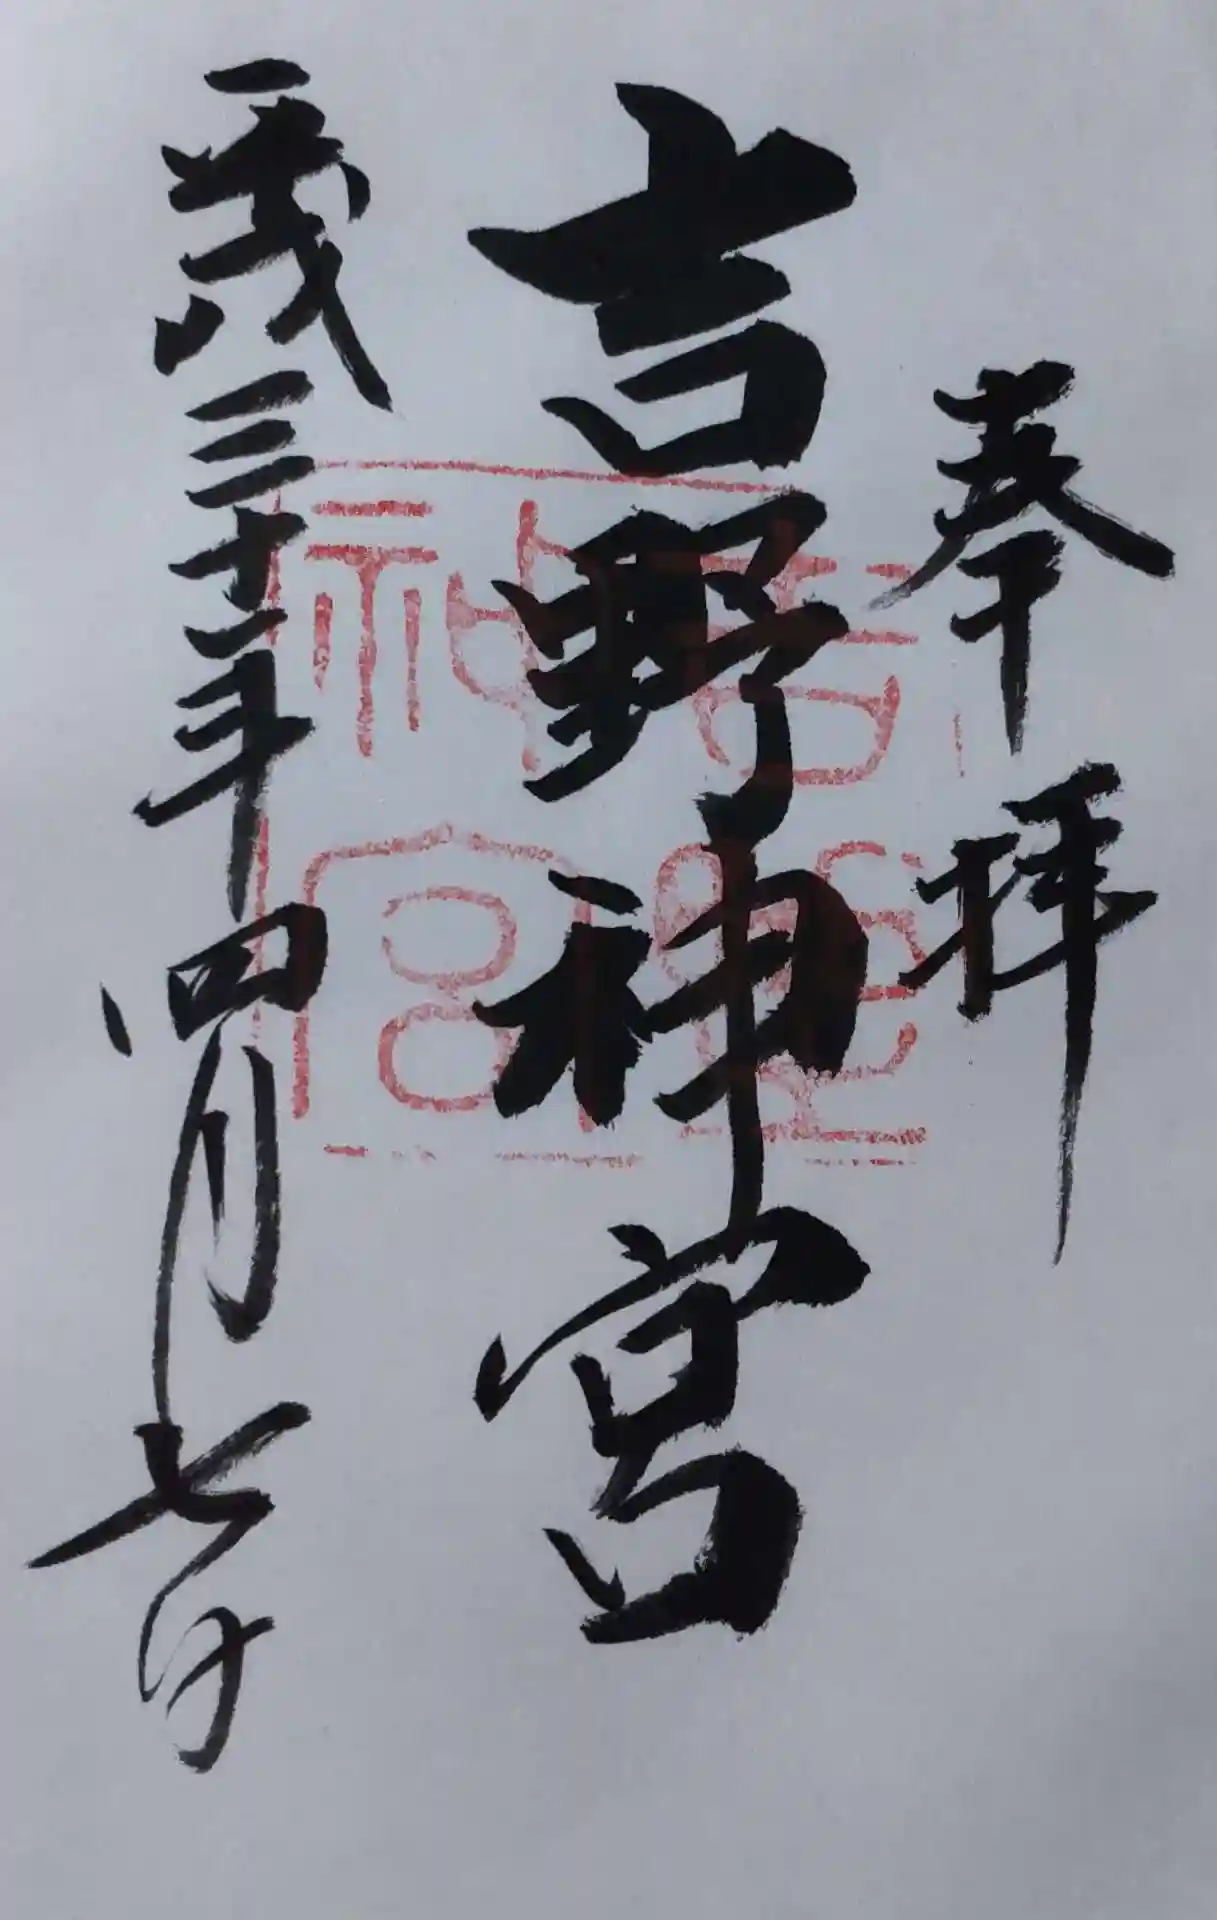 奉拝
吉野神宮
平成三十一年四月七日
吉野
神宮